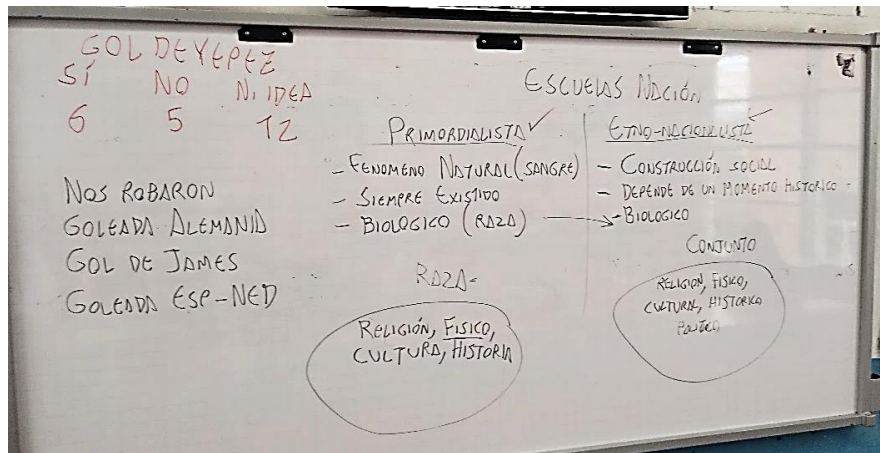 GOL DE YEPEZ
SÍ NO NI IDEA
6 5 12
NOS ROBARON
GOLEADA ALEMANIA
GOL DE JAMES
GOLEADA ESP-NED
ESCUELAS NACIÓN
PRIMORDIALISTA ✓
- FENOMENO NATURAL (SANGRE)
- SIEMPRE EXISTIDO
- BIOLOGICO (RAZA) →
RAZA-
RELIGIÓN, FISICO,
CULTURA, HISTORIA
ETNO-NACIONALISTA ✓
- CONSTRUCCIÓN SOCIAL
- DEPENDE DE UN MOMENTO HISTORICO -
- BIOLOGICO
CONJUNTO
RELIGION, FISICO,
CULTURAL, HISTORICO